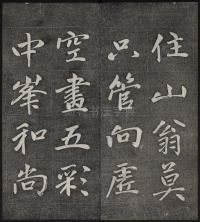 住山翁莫
只管向虛
空畫五彩
中峯和尚